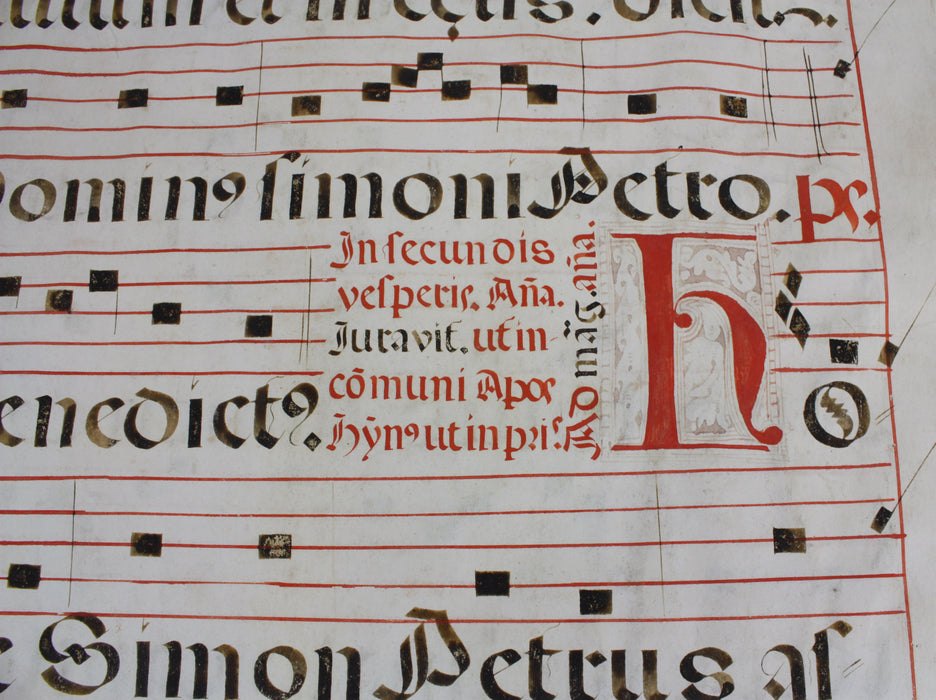 Dominꝰ simoni Petro. ps.
In secundis
vesperis. Aña.
Juravit. ut in
cōmuni Apoꝝ
Hỹnꝰ ut in pris.
Ad mag̃. aña.
enedictꝰ. HO
Simon Petrus as-